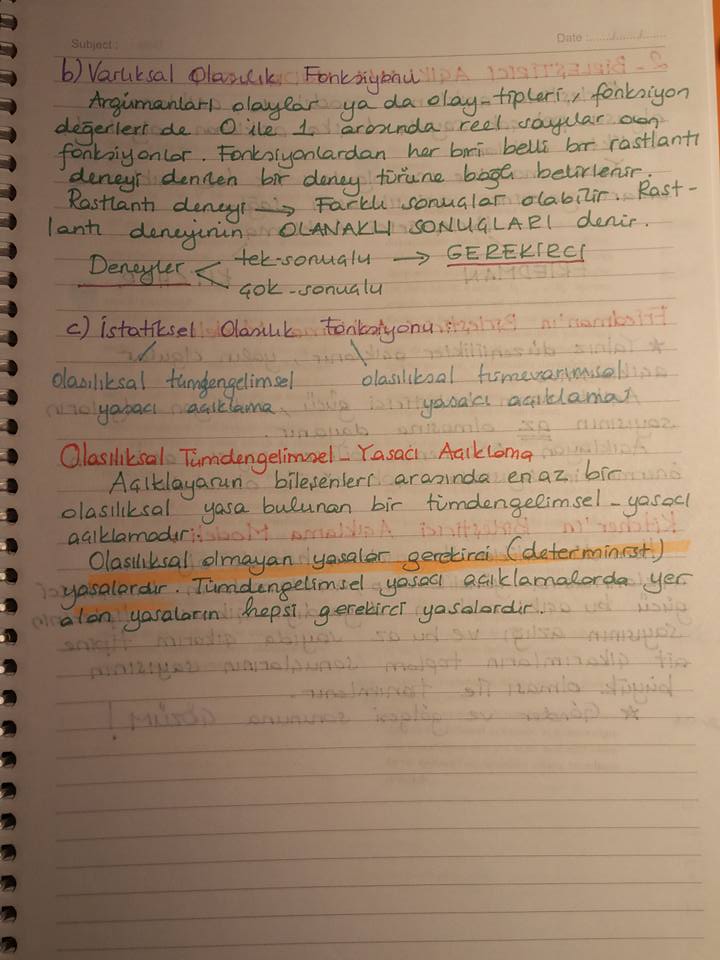 Subject :
Date :....../....../......
b) Varlıksal Olasılık Fonksiyonu
Argümanları olaylar ya da olay-tipleri, fonksiyon
değerleri de 0 ile 1 arasında reel sayılar olan
fonksiyonlar. Fonksiyonlardan her biri belli bir rastlantı
deneyi denilen bir deney türüne bağlı belirlenir.
Rastlantı deneyi → Farklı sonuçlar olabilir. Rast-
lantı deneyinin OLANAKLI SONUÇLARI denir.
Deneyler < tek-sonuçlu → GEREKİRCİ
çok-sonuçlu
c) İstatiksel Olasılık Fonksiyonu:
olasılıksal tümdengelimsel olasılıksal tümevarımsal
yasacı açıklama yasacı açıklama
Olasılıksal Tümdengelimsel-Yasacı Açıklama
Açıklayanın bileşenleri arasında en az bir
olasılıksal yasa bulunan bir tümdengelimsel-yasacı
açıklamadır.
Olasılıksal olmayan yasalar gerekirci (determinist)
yasalardır. Tümdengelimsel yasacı açıklamalarda yer
alan yasaların hepsi gerekirci yasalardır.